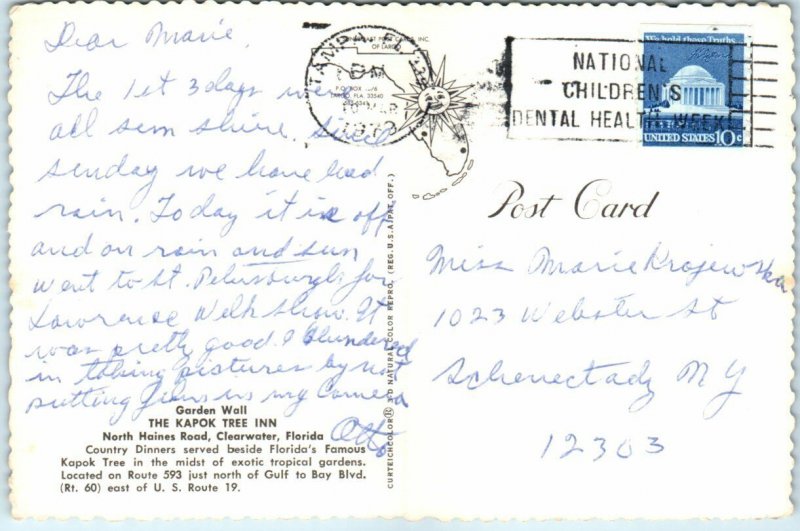 Dear Marie,
The 1st 3 days were
all sun shine. Since
sunday we have had
rain. Today it is off
and on rain and sun
went to St. Petersburgh for
Lawrence Welk show. It
was pretty good. I blundered
in taking pictures by not
putting film in my Camera
Otto
Garden Wall
THE KAPOK TREE INN
North Haines Road, Clearwater, Florida
Country Dinners served beside Florida's Famous
Kapok Tree in the midst of exotic tropical gardens.
Located on Route 593 just north of Gulf to Bay Blvd.
(Rt. 60) east of U. S. Route 19.
POST CARDS, INC.
OF LARGO
P.O. BOX
LARGO, FLA. 33540
TAMPA
PM
CURTEICHCOLOR® 3-D NATURAL COLOR REPRO. (REG. U.S.A. PAT. OFF.)
NATIONAL
CHILDREN'S
DENTAL HEALTH WEEK
We hold these Truths
UNITED STATES 10c
Post Card
Miss Marie Krajewska
1023 Webster St
Schenectady NY
12303